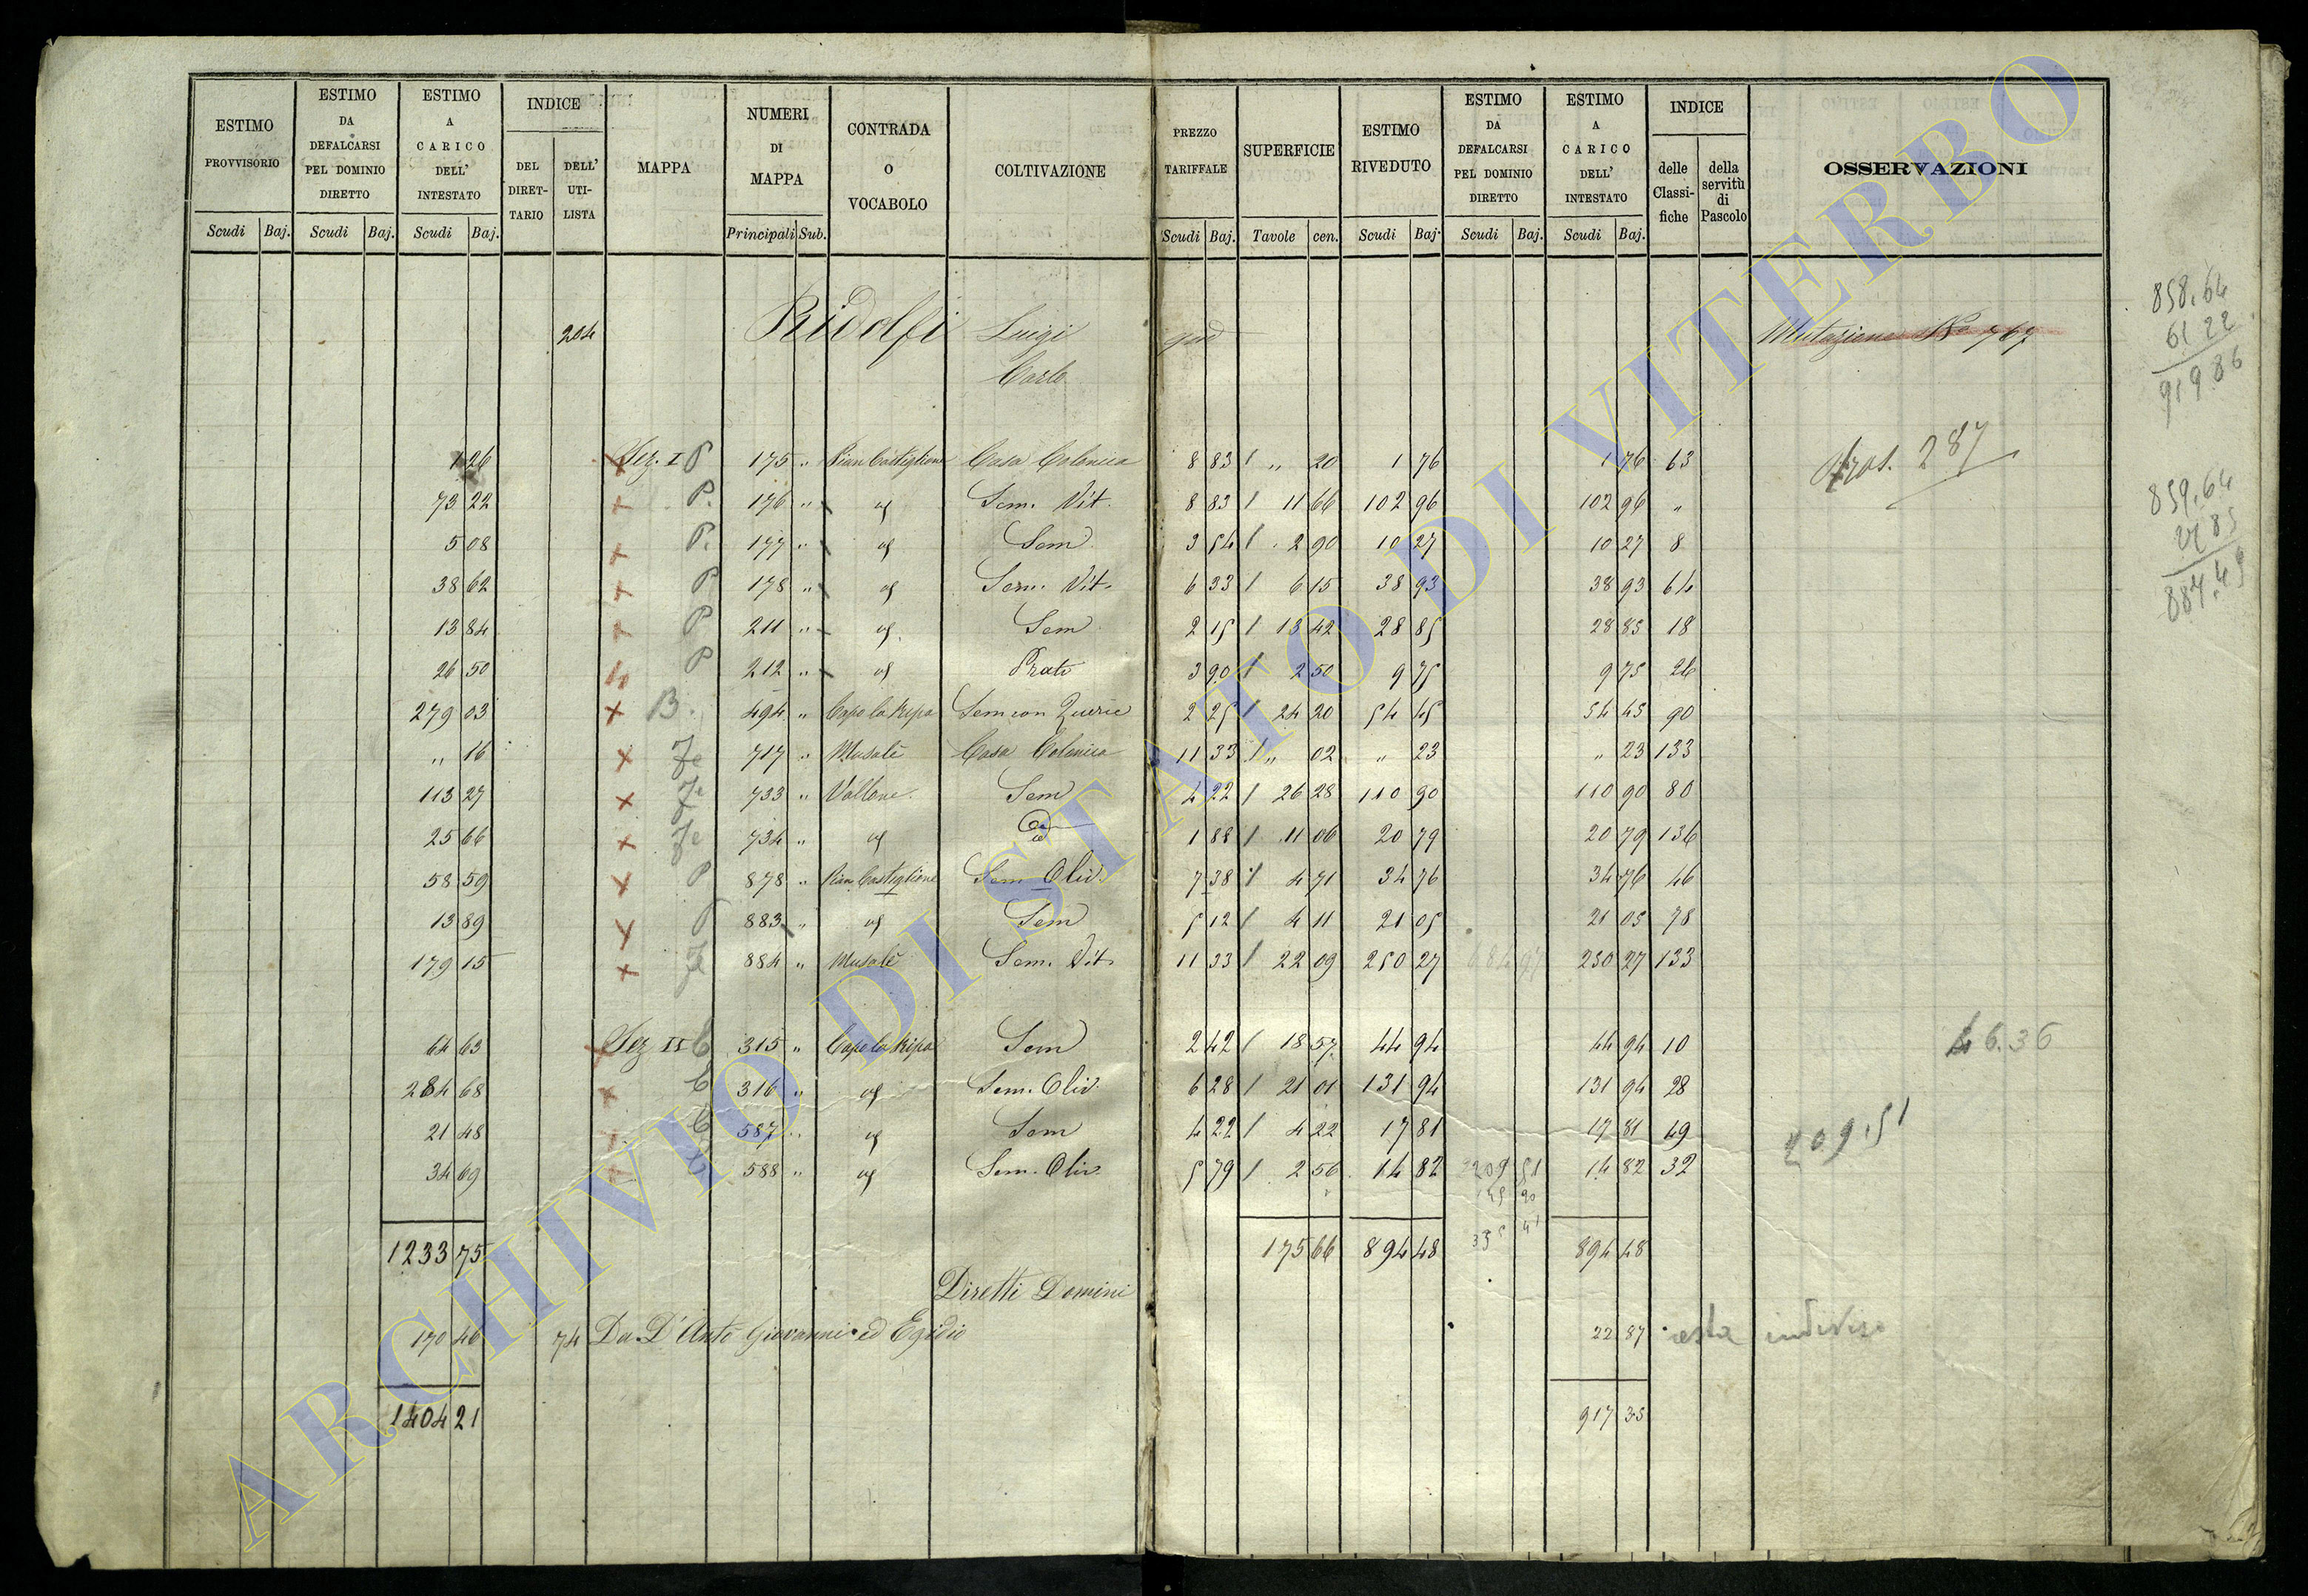 ESTIMO PROVVISORIO Scudi Baj. ESTIMO DA DEFALCARSI PEL DOMINIO DIRETTO Scudi Baj. ESTIMO A CARICO DELL' INTESTATO Scudi Baj. INDICE DEL DIRET-TARIO DELL' UTI-LISTA MAPPA NUMERI DI MAPPA Principali Sub. CONTRADA O VOCABOLO COLTIVAZIONE PREZZO TARIFFALE Scudi Baj. SUPERFICIE Tavole cen. ESTIMO RIVEDUTO Scudi Baj. ESTIMO DA DEFALCARSI PEL DOMINIO DIRETTO Scudi Baj. ESTIMO A CARICO DELL' INTESTATO Scudi Baj. INDICE delle Classi-fiche della servitù di Pascolo OSSERVAZIONI
204 Ridolfi Luigi qud Mutazione No 767
Carlo
1 26 Sez. I P 175 " Pian Castiglione Casa Colonica 8 83 / " 20 1 76 1 76 63 Tras. 287
73 22 P. 176 " id Sem. Vit. 8 83 / 11 66 102 96 102 96 "
5 08 P. 177 " id Sem 3 54 / 2 90 10 27 10 27 8
38 62 P 178 " id Sem. Vit. 6 33 / 6 15 38 93 38 93 64
13 84 P 211 " id. Sem 2 15 / 13 42 28 85 28 85 18
26 50 P 212 " id Prato 3 90 / 2 50 9 75 9 75 26
279 03 B. 494 " Capo la Ripa Sem con Querce 2 25 / 24 20 54 45 54 45 90
" 16 Je 717 " Musale Casa Colonica 11 33 / " 02 " 23 " 23 133
113 27 Je 733 " Vallone Sem 4 22 / 26 28 110 90 110 90 80
25 66 Je 734 " id id 1 88 / 11 06 20 79 20 79 136
58 59 P 878 " Pian Castiglione Sem Oliv. 7 38 / 4 71 34 76 34 76 46
13 89 P 883 " id Sem 5 12 / 4 11 21 05 21 05 78
179 15 Je 884 " Musale Sem. Vit. 11 33 / 22 09 250 27 250 27 133
64 63 Sez II C 315 " Capo la Ripa Sem 2 42 / 18 57 44 94 44 94 10 46.36
284 68 C 316 " id Sem. Oliv. 6 28 / 21 01 131 94 131 94 28
21 48 C 587 " id Sem 4 22 / 4 22 17 81 17 81 49 209.51
34 69 C 588 " id Sem. Oliv. 5 79 / 2 56 14 82 14 82 32
1233 75 175 66 894 48 894 48
Diretti Domini
170 46 74 Da D'Anto Giovanni ed Egidio 22 87 resta indiviso
1404 21 917 35
858.64
61 22
919.86
859.64
27 85
887.49
ARCHIVIO DI STATO DI VITERBO